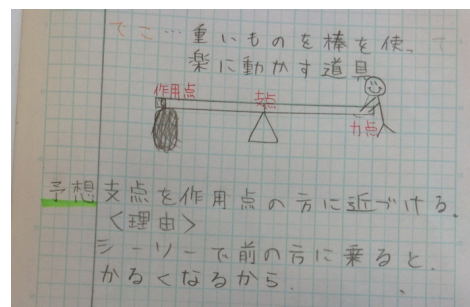 てこ…重いものを棒を使って
楽に動かす道具
作用点
支点
力点
予想 支点を作用点の方に近づける。
<理由>
シーソーで前の方に乗ると、
かるくなるから.